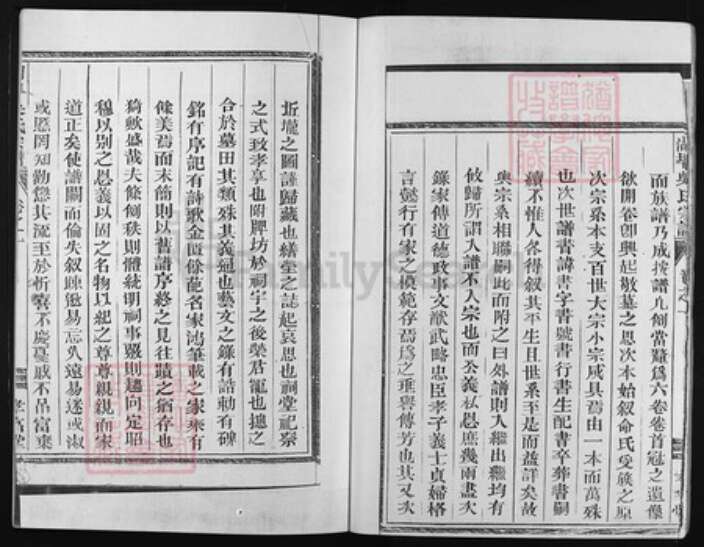 而族譜乃成按譜凡例當釐爲六卷卷首冠之遺像
欲開卷卽興起敬墓之思次本始叙命氏受族之原
次宗系本支百世大宗小宗咸具焉由一本而萬殊
也次世譜書諱書字書號書行書生配書卒葬書嗣
續不惟人各得叙其平生且世系至是而益詳矣故
與宗系相聯嗣此而附之曰外譜則人繼出繼均有
攸歸所謂人譜不人宗也而公義私恩庶幾兩盡次
錄家傳道德政事文猷武略忠臣孝子義士貞婦格
言懿行有家之模範存焉爲之垂譽傳芳也其又次
圻壠之圖謹歸藏也繕塋之誌起哀思也祠堂祀祭
之式致孝享也附牌坊於祠宇之後榮君寵也摠之
合於墓田其類殊其義通也藝文之錄有誥勅有碑
銘有序記有詩歌金匱餘葩名家鴻筆載之家乘有
餘美焉而末簡則以舊譜序終之見往蹟之猶存也
猗歟盛哉夫條例秩則體統明祠事嚴則趨向定昭
穆以別之恩義以固之名物以紀之尊尊親親而家
道正矣使譜闕而倫失叙踈邈易忘久遠易遂或淑
或慝罔知勸懲其流至於忻喜不慶憂戚不吊富棄
FamilySearch